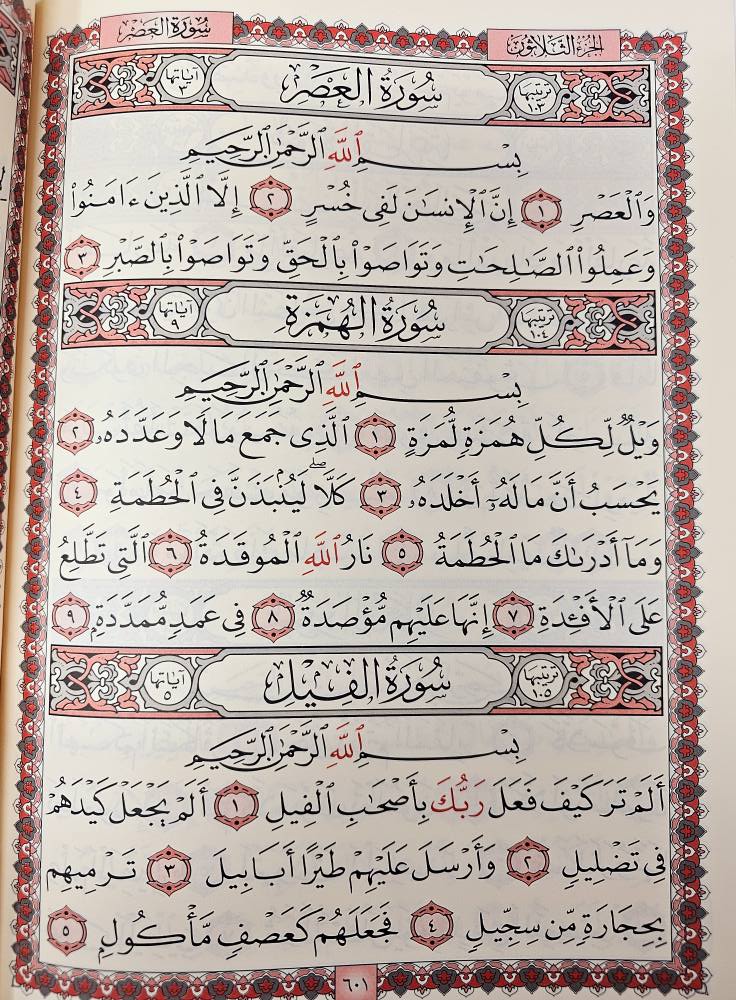 سُورَةُ العَصْرِ
الجُزءُ الثَّلَاثُونَ
ترتيبها ١٠٣ سُورَةُ العَصْرِ آياتها ٣
بِسْمِ ٱللَّهِ ٱلرَّحْمَٰنِ ٱلرَّحِيمِ
وَٱلْعَصْرِ ١ إِنَّ ٱلْإِنسَٰنَ لَفِى خُسْرٍ ٢ إِلَّا ٱلَّذِينَ ءَامَنُوا۟
وَعَمِلُوا۟ ٱلصَّٰلِحَٰتِ وَتَوَاصَوْا۟ بِٱلْحَقِّ وَتَوَاصَوْا۟ بِٱلصَّبْرِ ٣
ترتيبها ١٠٤ سُورَةُ الهُمَزَةِ آياتها ٩
بِسْمِ ٱللَّهِ ٱلرَّحْمَٰنِ ٱلرَّحِيمِ
وَيْلٌ لِّكُلِّ هُمَزَةٍ لُّمَزَةٍ ١ ٱلَّذِى جَمَعَ مَالًا وَعَدَّدَهُۥ ٢
يَحْسَبُ أَنَّ مَالَهُۥٓ أَخْلَدَهُۥ ٣ كَلَّا ۖ لَيُنۢبَذَنَّ فِى ٱلْحُطَمَةِ ٤
وَمَآ أَدْرَىٰكَ مَا ٱلْحُطَمَةُ ٥ نَارُ ٱللَّهِ ٱلْمُوقَدَةُ ٦ ٱلَّتِى تَطَّلِعُ
عَلَى ٱلْأَفْـِٔدَةِ ٧ إِنَّهَا عَلَيْهِم مُّؤْصَدَةٌ ٨ فِى عَمَدٍ مُّمَدَّدَةٍۭ ٩
ترتيبها ١٠٥ سُورَةُ الفِيلِ آياتها ٥
بِسْمِ ٱللَّهِ ٱلرَّحْمَٰنِ ٱلرَّحِيمِ
أَلَمْ تَرَ كَيْفَ فَعَلَ رَبُّكَ بِأَصْحَٰبِ ٱلْفِيلِ ١ أَلَمْ يَجْعَلْ كَيْدَهُمْ
فِى تَضْلِيلٍ ٢ وَأَرْسَلَ عَلَيْهِمْ طَيْرًا أَبَابِيلَ ٣ تَرْمِيهِم
بِحِجَارَةٍ مِّن سِجِّيلٍ ٤ فَجَعَلَهُمْ كَعَصْفٍ مَّأْكُولٍۭ ٥
٦٠١